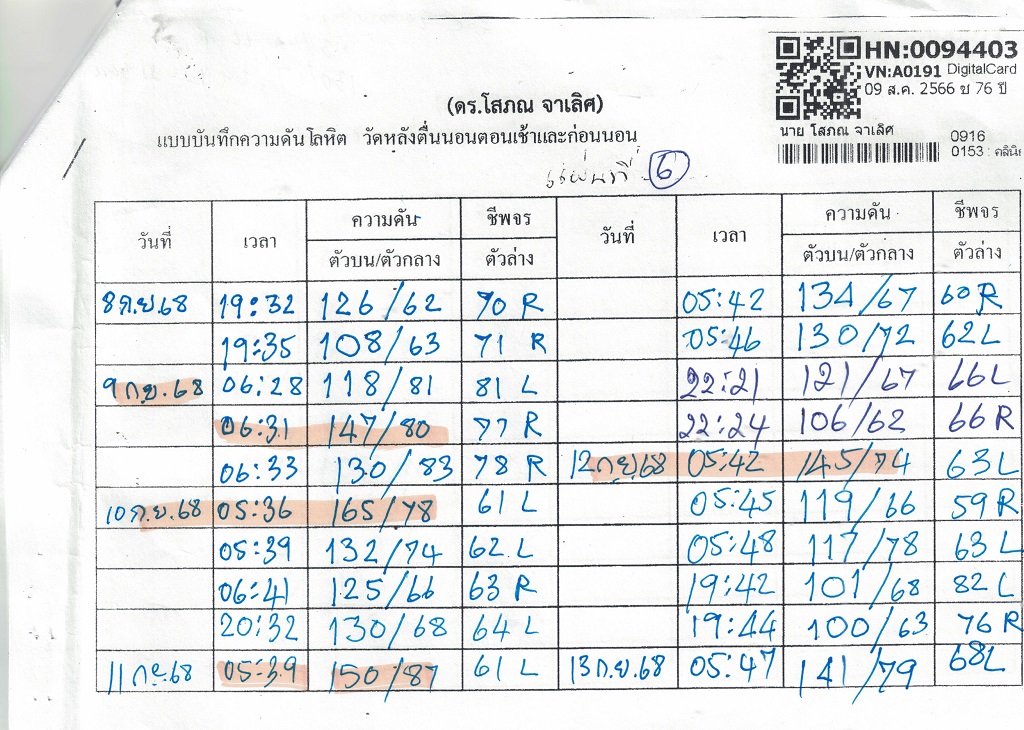 HN:0094403
VN:A0191 DigitalCard
09 ส.ค. 2566 ข 76 ปี
(ดร.โสภณ จาเลิศ)
นาย โสภณ จาเลิศ
0916
แบบบันทึกความดันโลหิต วัดหลังตื่นนอนตอนเช้าและก่อนนอน
0153 : คลินิ
แผ่นที่ 6
วันที่ เวลา ความดัน ชีพจร วันที่ เวลา ความดัน ชีพจร
ตัวบน/ตัวกลาง ตัวล่าง ตัวบน/ตัวกลาง ตัวล่าง
8 ก.ย.68 19:32 126/62 70 R 05:42 134/67 60 R
19:35 108/63 71 R 05:46 130/72 62 L
9 ก.ย.68 06:28 118/81 81 L 22:21 121/67 66 L
06:31 147/80 77 R 22:24 106/62 66 R
06:33 130/83 78 R 12 ก.ย.68 05:42 145/74 63 L
10 ก.ย.68 05:36 165/78 61 L 05:45 119/66 59 R
05:39 132/74 62 L 05:48 117/78 63 L
06:41 125/66 63 R 19:42 101/68 82 L
20:32 130/68 64 L 19:44 100/63 76 R
11 ก.ย.68 05:39 150/87 61 L 13 ก.ย.68 05:47 141/79 68 L